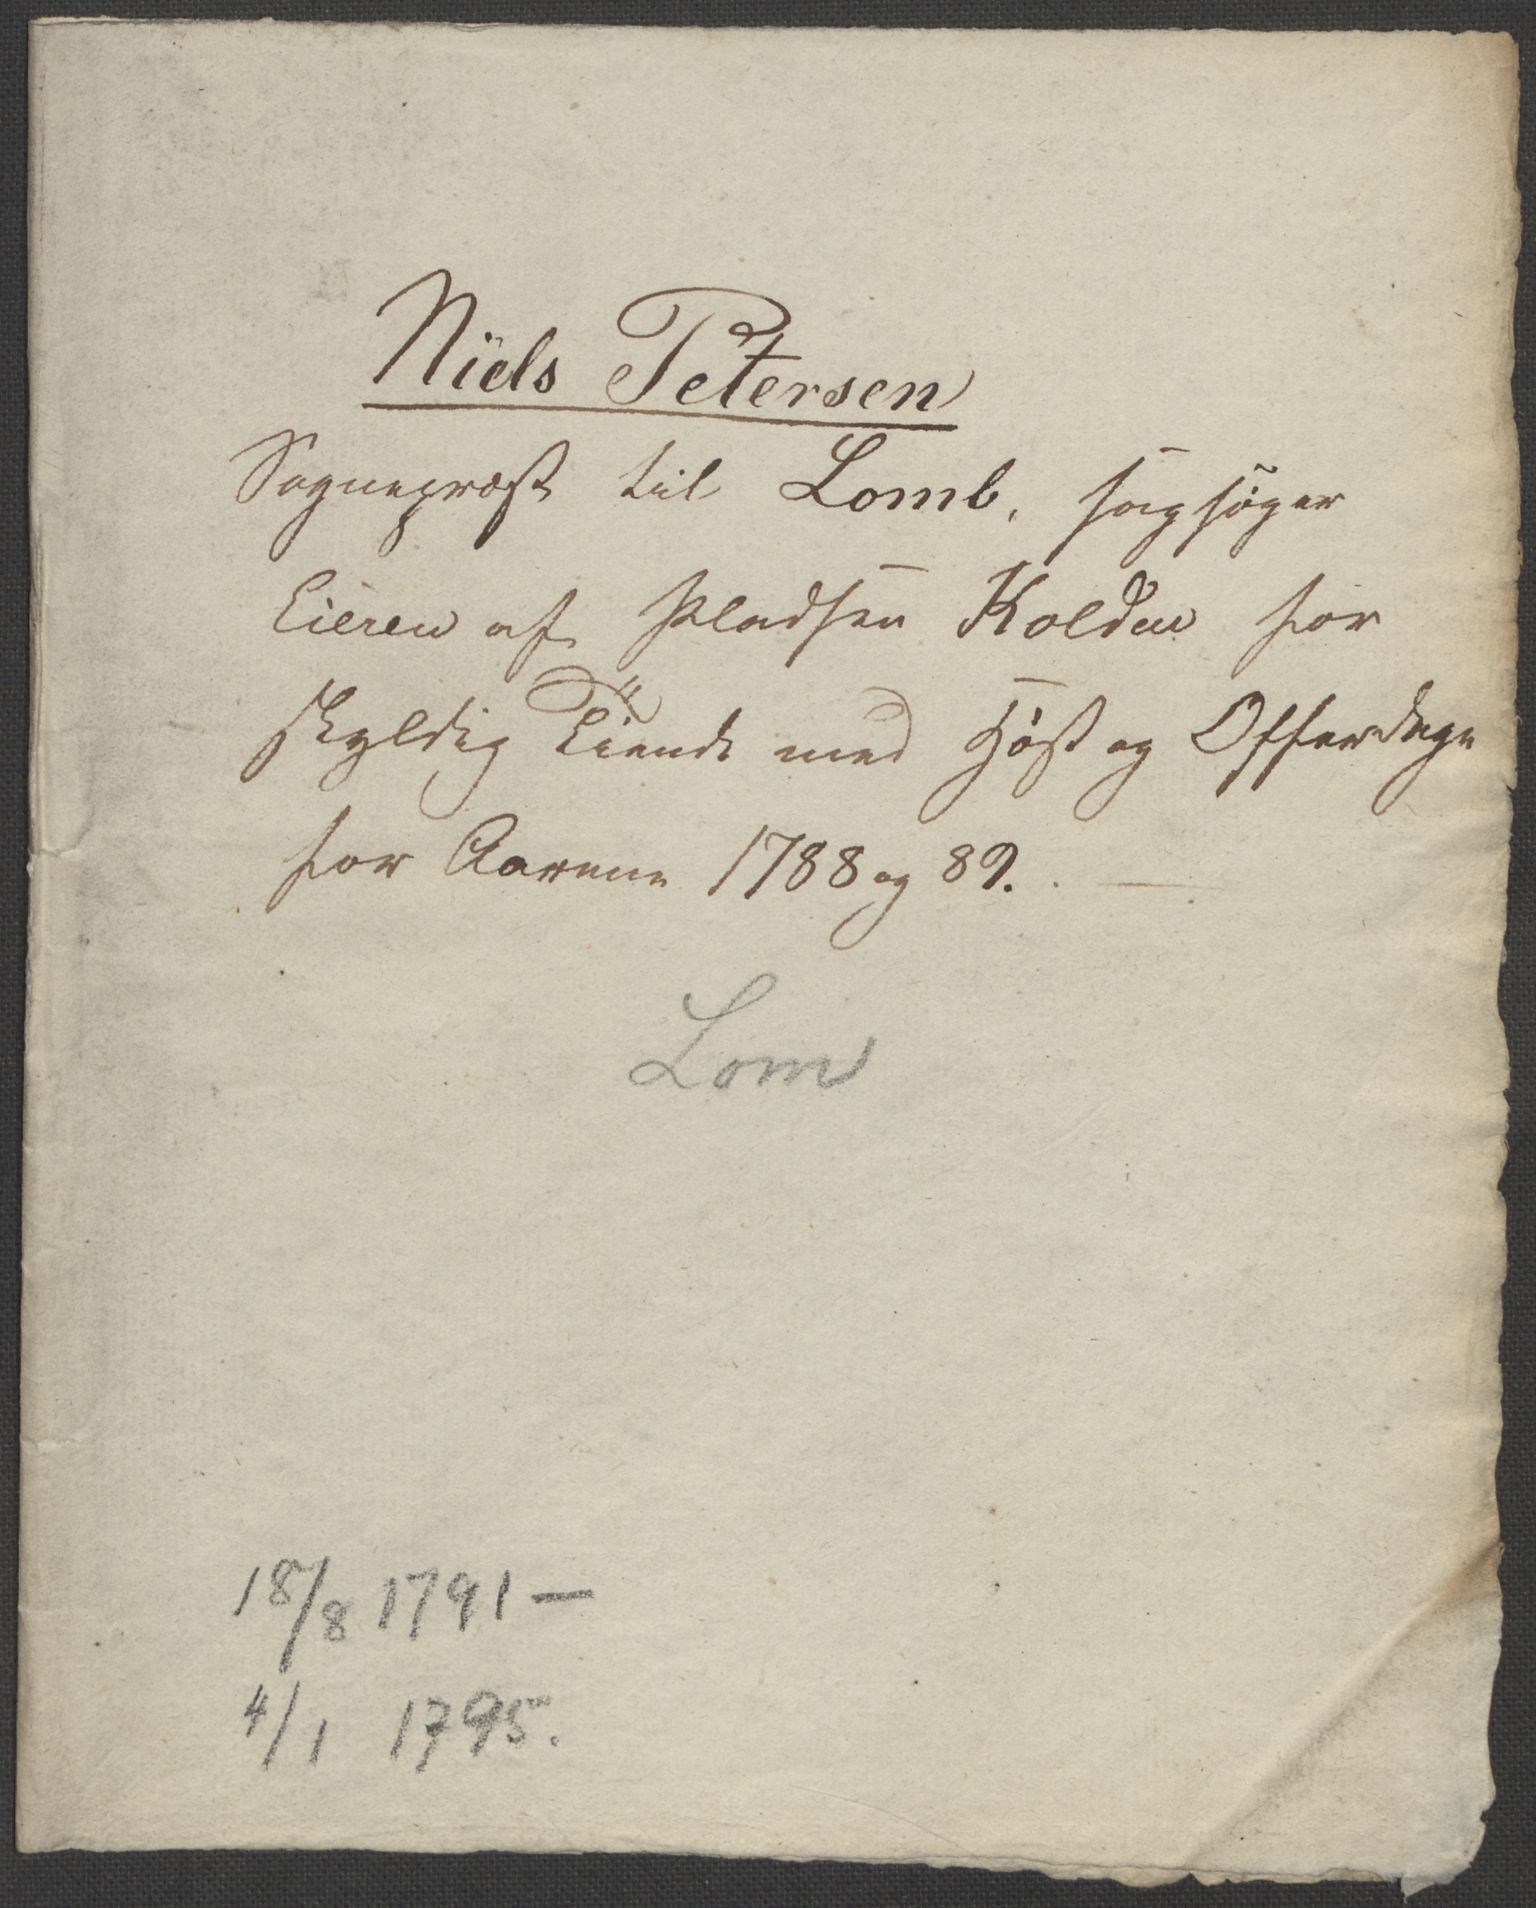 Niels Petersen
Sognepræst til Lomb, sagsøger
Eieren af Pladsen Kolden for
skyldig Tiende med Høst og Offerdage
for Aarene 1788 og 89.
Lom
18/8 1791 —
4/1 1795.